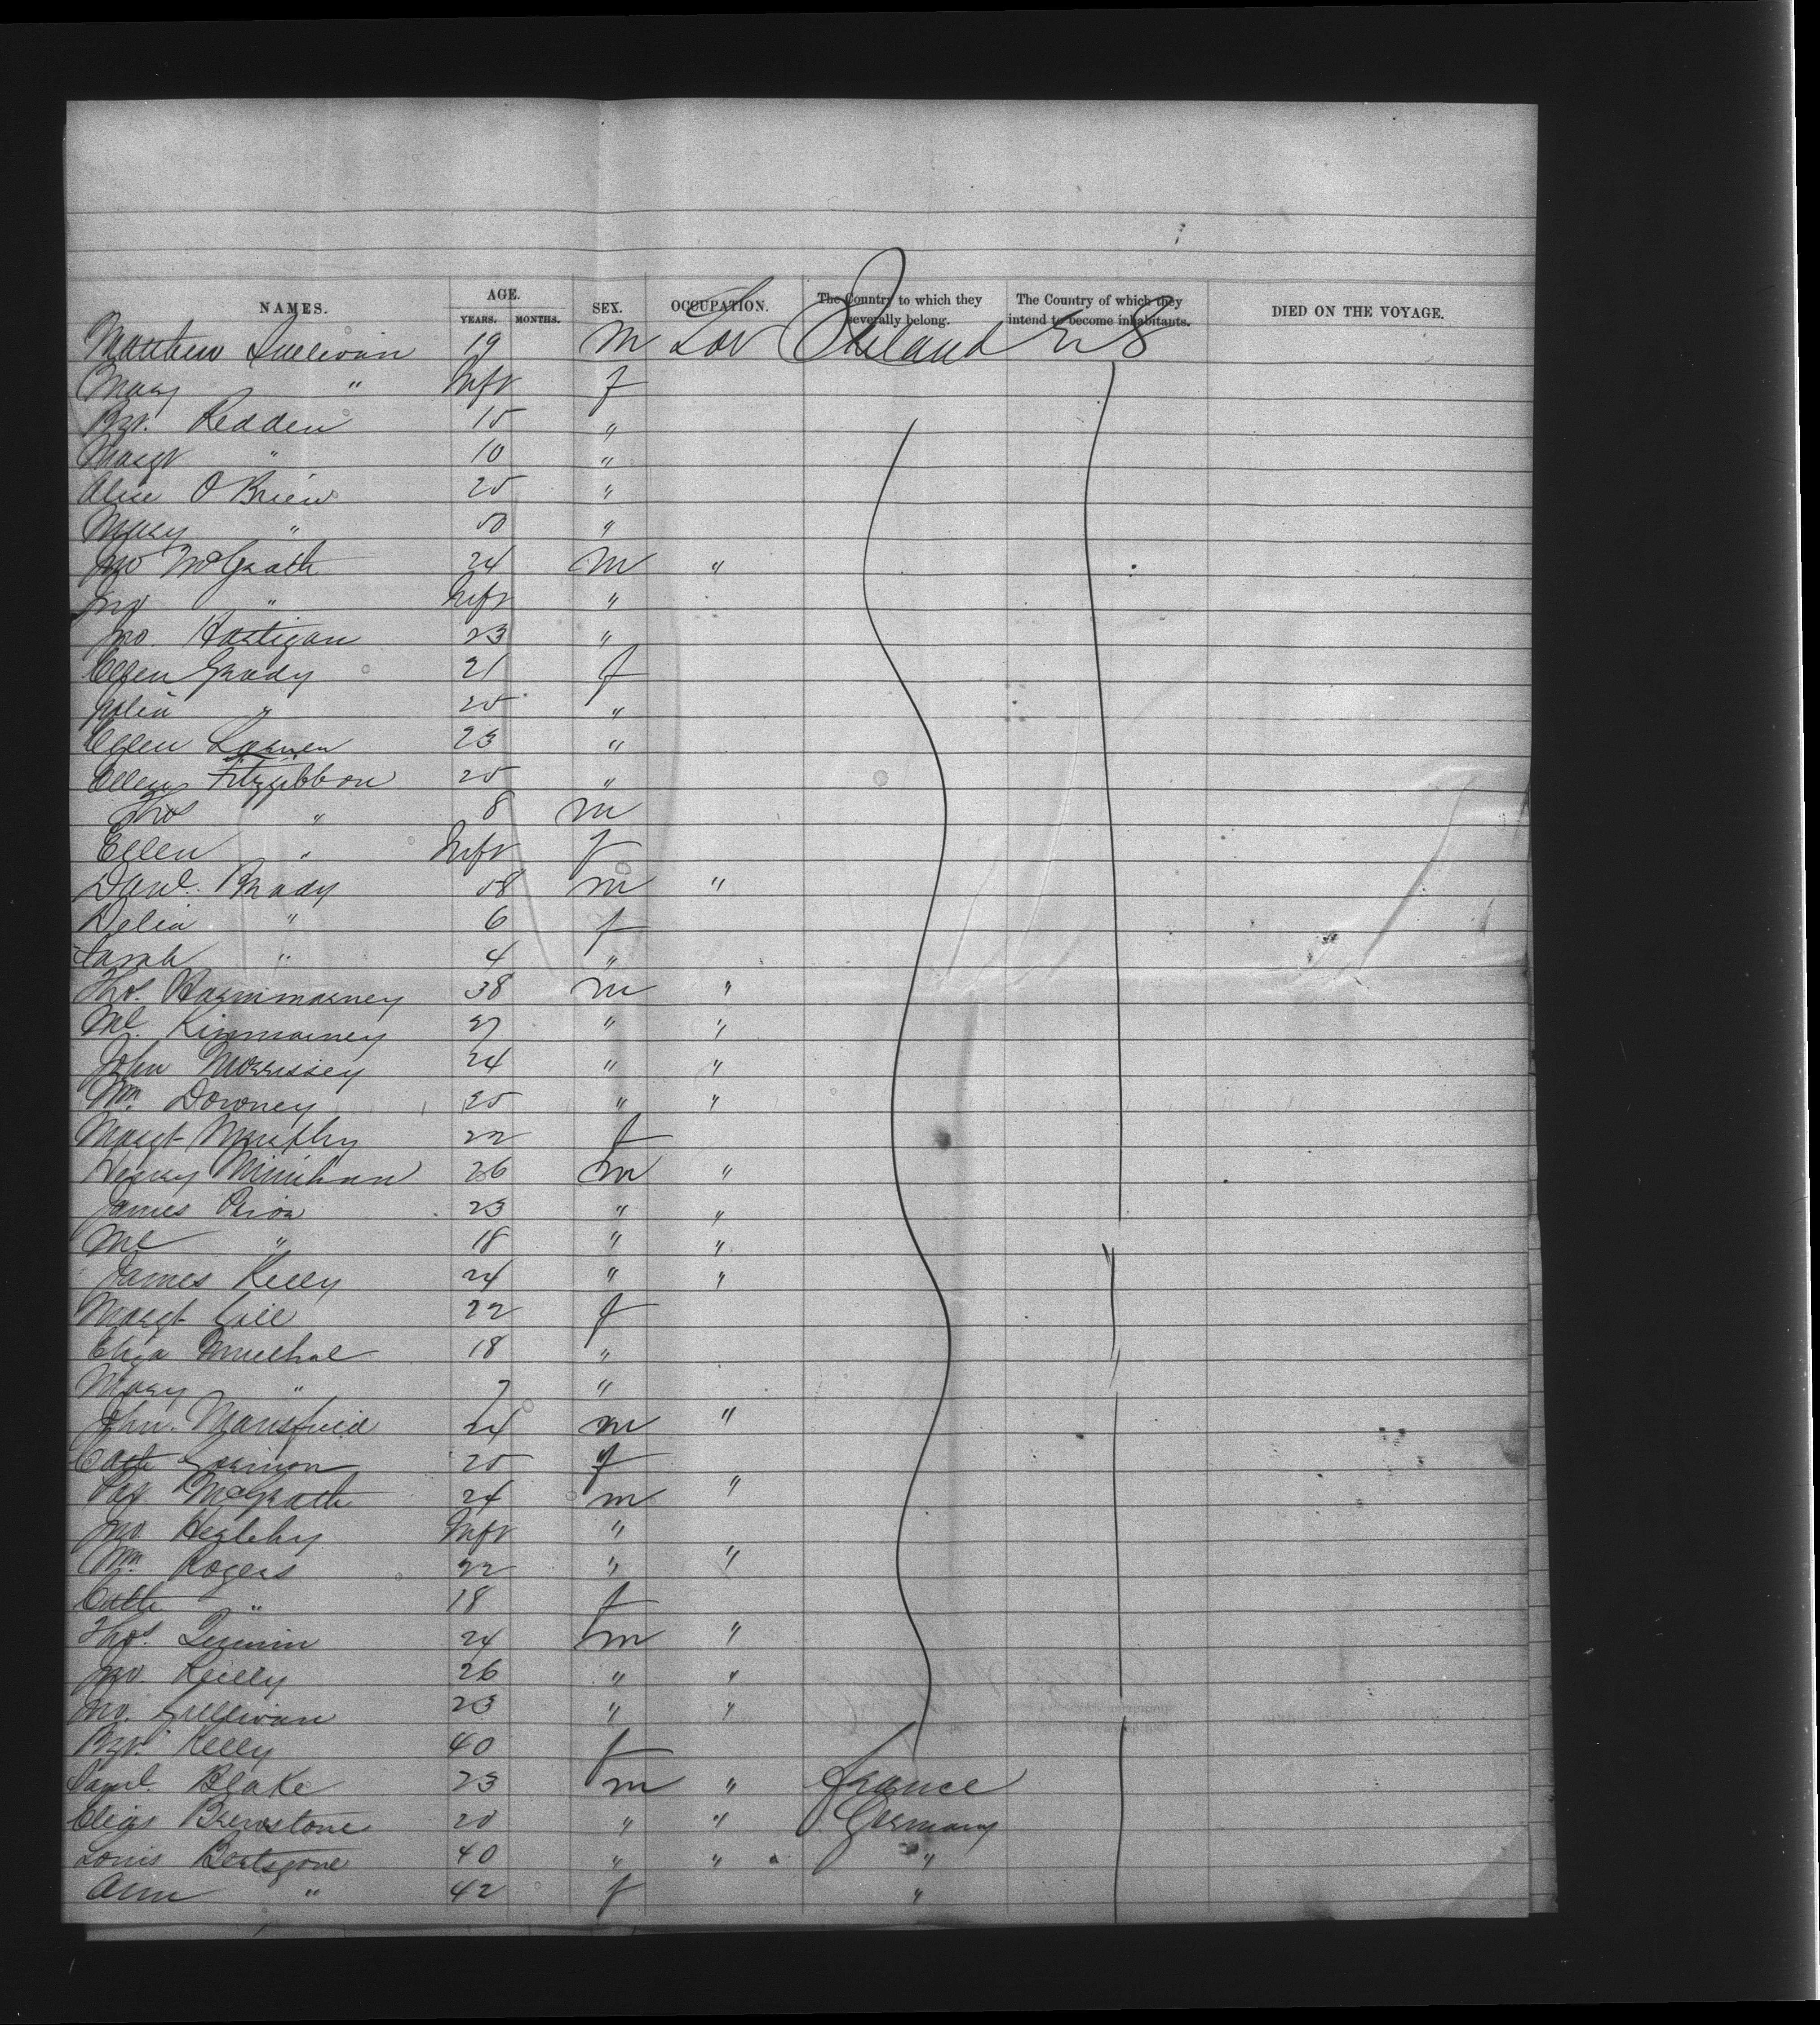 NAMES. AGE. YEARS. MONTHS. SEX. OCCUPATION. The Country to which they severally belong. The Country of which they intend to become inhabitants. DIED ON THE VOYAGE.
Matthew Sullivan 19 m Lab Ireland U S
Mary " Inft f
Bgt. Redden 15 "
Margt " 10 "
Alice O'Brien 20 "
Mary " 50 "
Jno McGrath 24 m "
Jno " Inft "
Jno. Hartigan 23 "
Ellen Grady 21 f
Julia " 20 "
Ellen 23 "
Fitzgibbon 20 "
Thos " 8 m
Ellen " Inft f
Danl. Brady 58 m "
Delia " 6 f
Sarah " 4 "
Thos. 38 m "
Ml. 27 " "
John Morrissey 24 " "
Wm. Downey 25 " "
Margt Murphy 22 f
Henry Minihan 26 m "
James 23 " "
Ml " 18 " "
James Kelly 24 " "
Margt Gill 22 f
Eliza 18 "
Mary " 7 "
John. Mansfield 24 m "
Cath 20 f
Pat McGrath 24 m "
Jno. Inft "
Wm. Rogers 22 " "
Cath " 18 f
Thos. 24 m "
Jno. Reilly 26 " "
Jno. Sullivan 23 " "
Bgt. Kelly 40 f
Saml. Blake 23 m " France
Elias 20 " " Germany
Louis 40 " " "
Ann " 42 f "